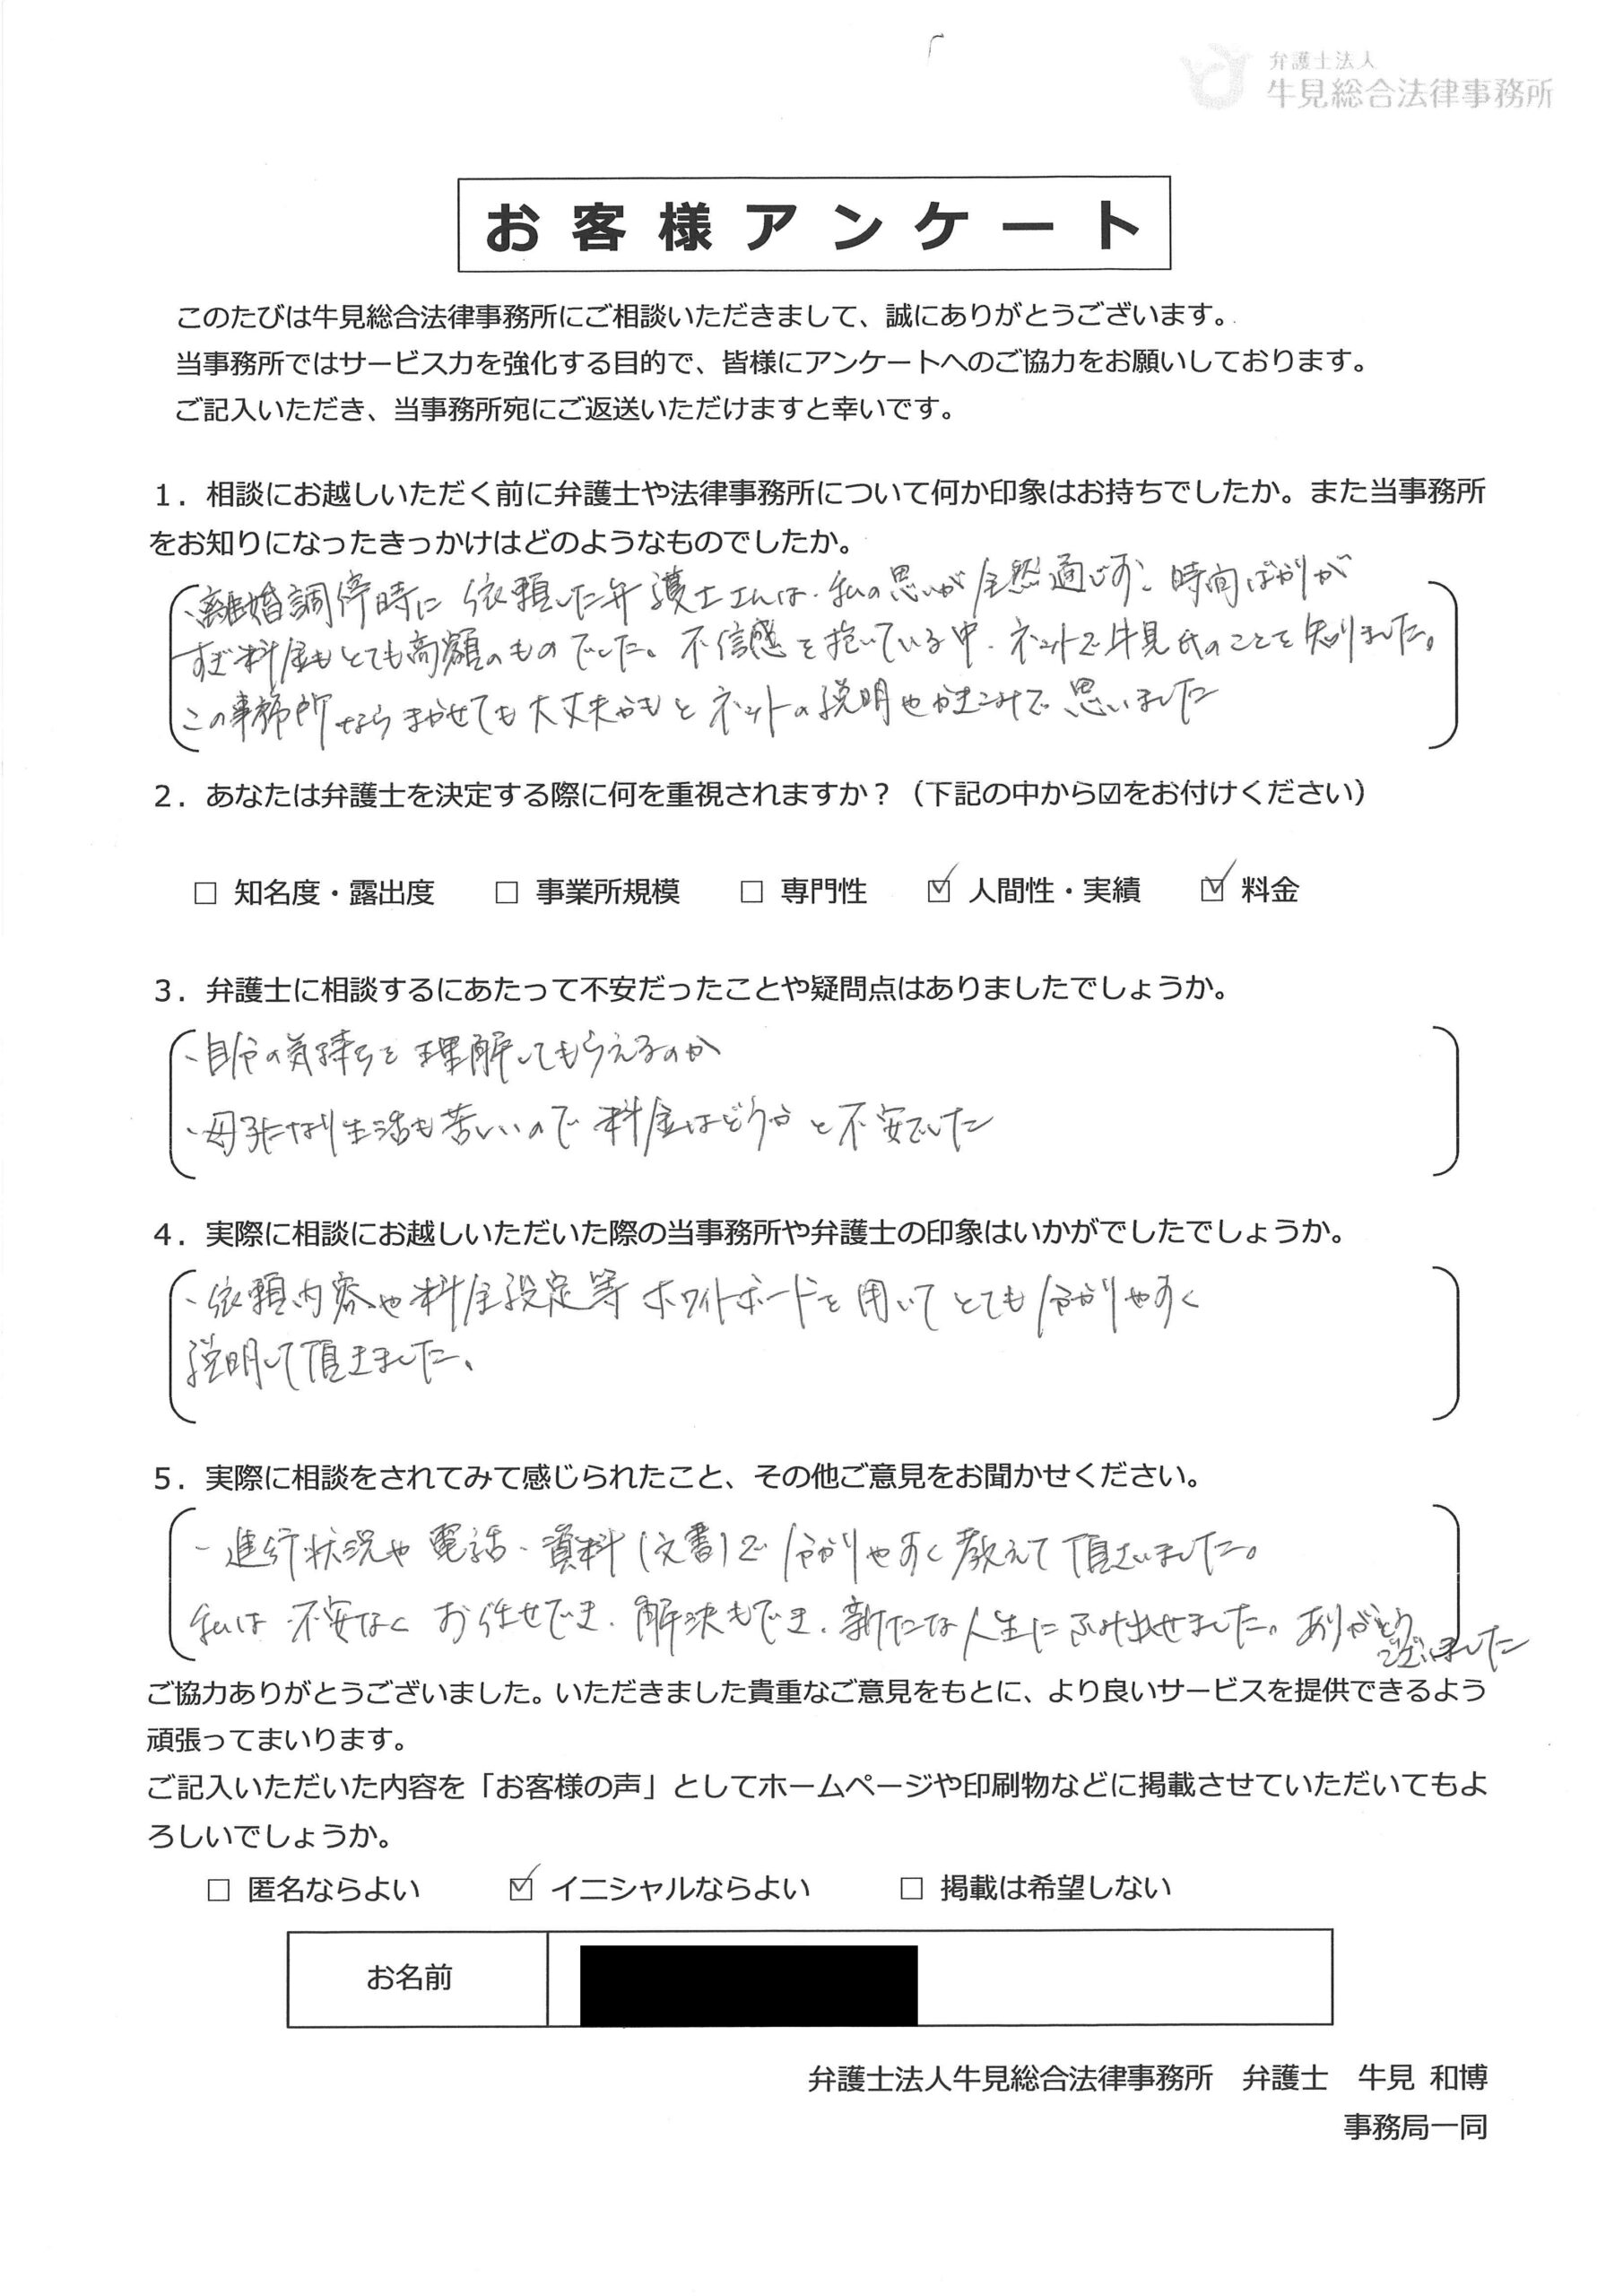 弁護士法人
牛見総合法律事務所
お客様アンケート
このたびは牛見総合法律事務所にご相談いただきまして、誠にありがとうございます。
当事務所ではサービス力を強化する目的で、皆様にアンケートへのご協力をお願いしております。
ご記入いただき、当事務所宛にご返送いただけますと幸いです。
1．相談にお越しいただく前に弁護士や法律事務所について何か印象はお持ちでしたか。また当事務所
をお知りになったきっかけはどのようなものでしたか。
・離婚調停時に依頼した弁護士さんは、私の思いが全然通じず、時間ばかりが
すぎ料金もとても高額のものでした。不信感を抱いている中、ネットで牛見氏のことを知りました。
この事務所ならまかせても大丈夫かもとネットの説明や書きこみで思いました
2．あなたは弁護士を決定する際に何を重視されますか？（下記の中から☑をお付けください）
□ 知名度・露出度 □ 事業所規模 □ 専門性 ☑ 人間性・実績 ☑ 料金
3．弁護士に相談するにあたって不安だったことや疑問点はありましたでしょうか。
・自分の気持ちを理解してもらえるのか
・母子になり生活も苦しいので料金はどうかと不安でした
4．実際に相談にお越しいただいた際の当事務所や弁護士の印象はいかがでしたでしょうか。
・依頼内容や料金設定等ホワイトボードを用いてとても分かりやすく
説明して頂きました。
5．実際に相談をされてみて感じられたこと、その他ご意見をお聞かせください。
・進行状況や電話、資料(文書)で分かりやすく教えて頂きました。
私は不安なくお任せでき、解決もでき、新たな人生にふみ出せました。ありがとう
ございました
ご協力ありがとうございました。いただきました貴重なご意見をもとに、より良いサービスを提供できるよう
頑張ってまいります。
ご記入いただいた内容を「お客様の声」としてホームページや印刷物などに掲載させていただいてもよ
ろしいでしょうか。
□ 匿名ならよい ☑ イニシャルならよい □ 掲載は希望しない
お名前
弁護士法人牛見総合法律事務所　弁護士　牛見 和博
事務局一同